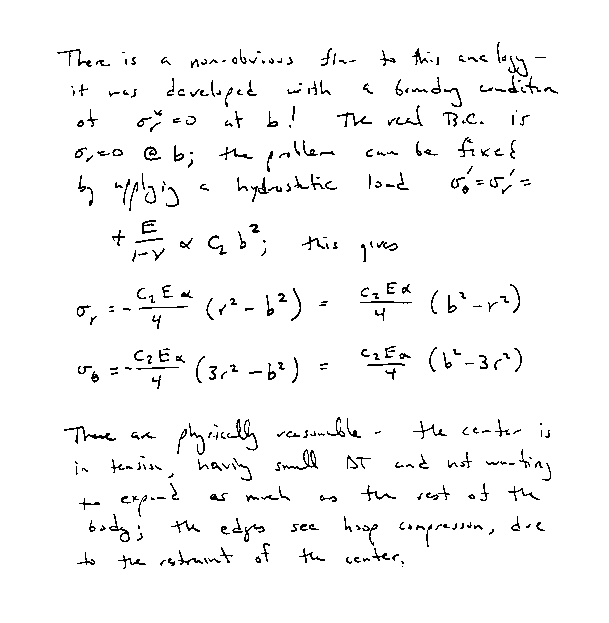 There is a non-obvious flaw to this analogy –
it was developed with a boundary condition
of σᵣ* = 0 at b! The real B.C. is
σᵣ = 0 @ b; the problem can be fixed
by applying a hydrostatic load σ_θ' = σᵣ' =
+ E/(1-ν) α C₂ b²; this gives
σᵣ = - C₂Eα/4 (r² - b²) = C₂Eα/4 (b² - r²)
σ_θ = - C₂Eα/4 (3r² - b²) = C₂Eα/4 (b² - 3r²)
These are physically reasonable - the center is
in tension, having small ΔT and not wanting
to expand as much as the rest of the
body; the edges see hoop compression, due
to the restraint of the center.